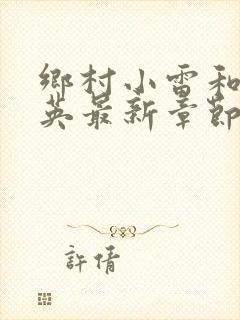 鄉村小雷和
英最新章節
許倩